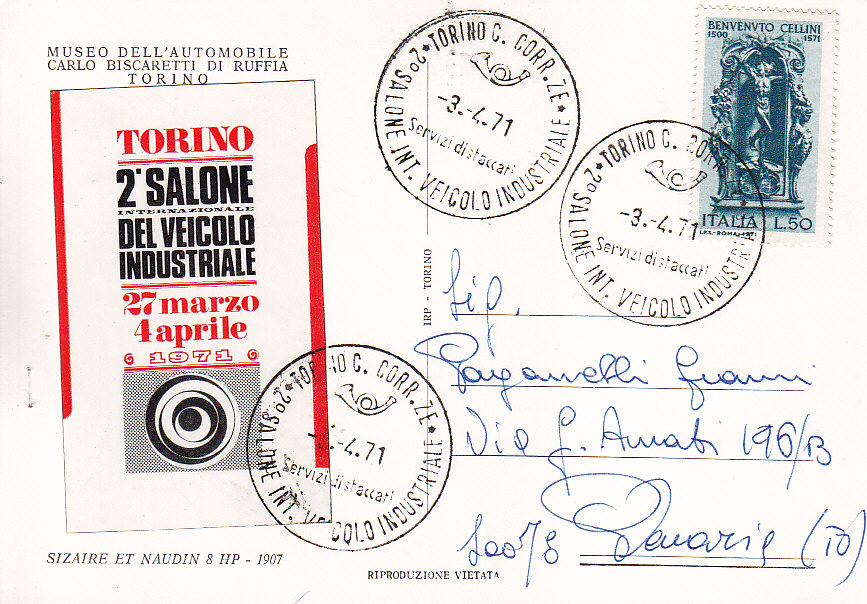 MUSEO DELL'AUTOMOBILE
CARLO BISCARETTI DI RUFFIA
TORINO
TORINO
2° SALONE
INTERNAZIONALE
DEL VEICOLO
INDUSTRIALE
27 marzo
4 aprile
1971
SIZAIRE ET NAUDIN 8 HP - 1907
IRP - TORINO
RIPRODUZIONE VIETATA
TORINO C. CORR.ZE
-3.-4.71
Servizi distaccati
2° SALONE INT. VEICOLO INDUSTRIALE
BENVENVTO CELLINI
1500 1571
ITALIA L.50
I.P.S.-ROMA-1971
TORINO C. CORR
-3.-4.71
Servizi distaccati
2° SALONE INT. VEICOLO INDUSTRIA
TORINO C. CORR.ZE
-4.71
Servizi distaccati
2° SALONE INT. VEICOLO INDUSTRIALE
Sig.
Paganelli Gianni
Via G. Amati 196/B
Venaria (TO)